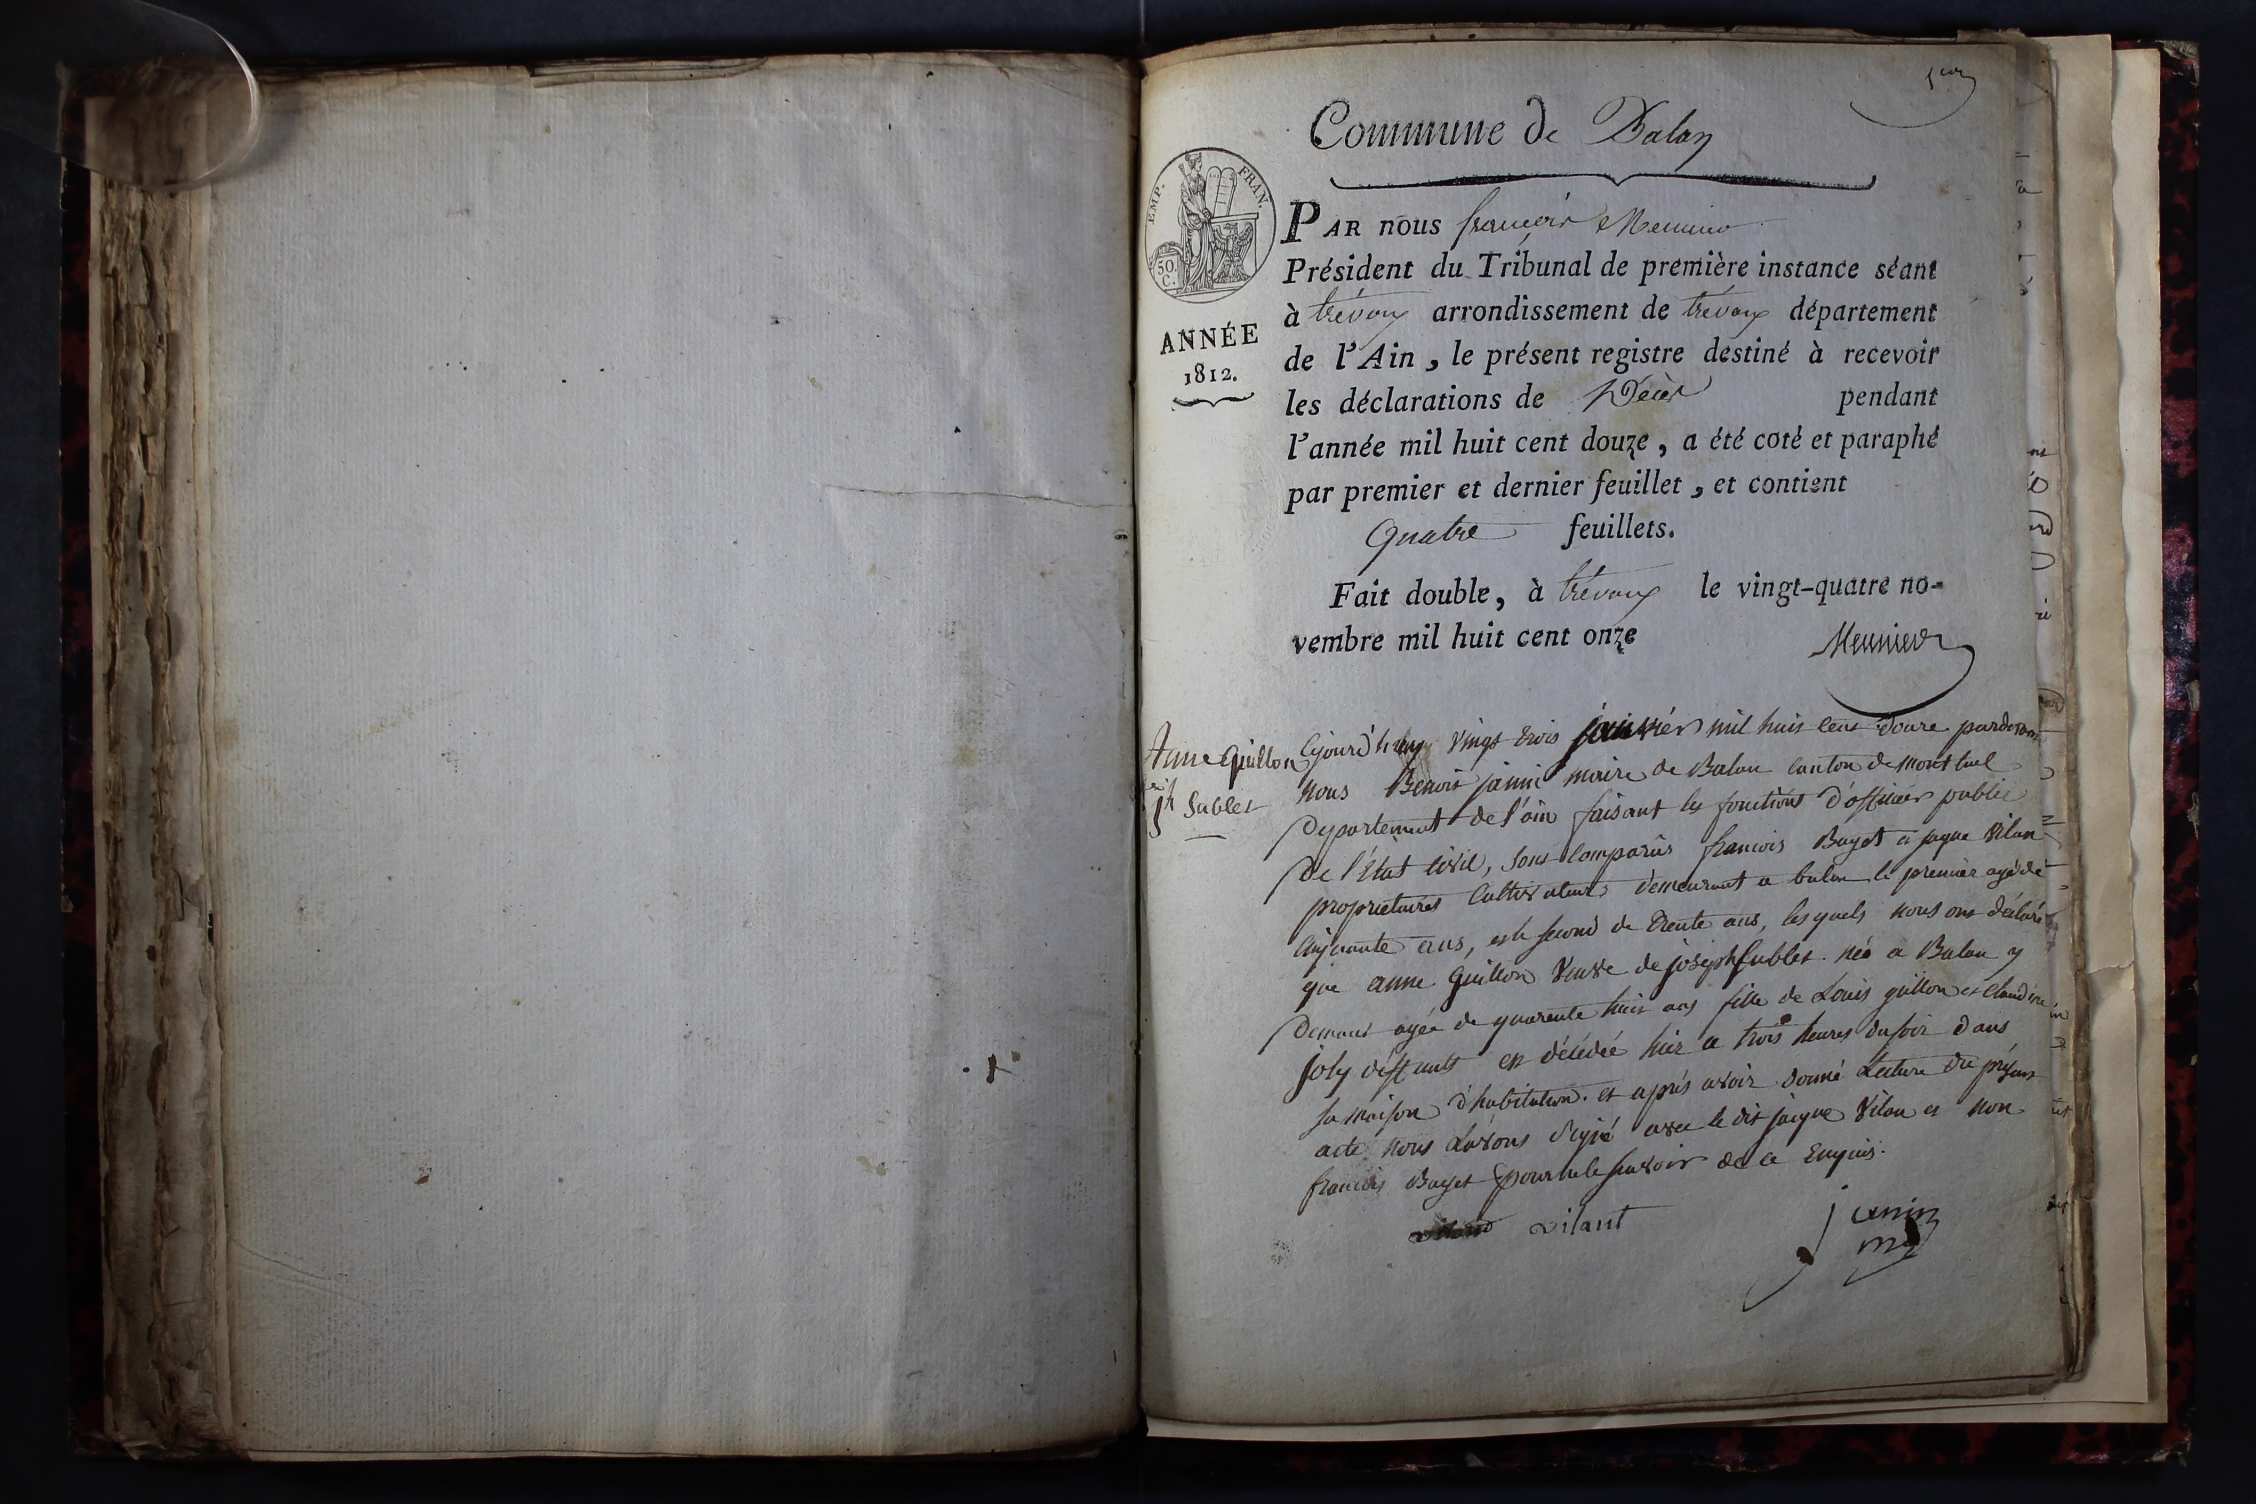 1er
Commune de Balan
EMP. FRAN.
50.
C.
ANNÉE
1812.
PAR nous françois Meunier
Président du Tribunal de première instance séant
à trévoux arrondissement de trévoux département
de l'Ain, le présent registre destiné à recevoir
les déclarations de Décès pendant
l'année mil huit cent douze, a été coté et paraphé
par premier et dernier feuillet, et contient
Quatre feuillets.
Fait double, à trévoux le vingt-quatre no-
vembre mil huit cent onze
Meunier
Anne Guillon
Sublet
ajourd'huy vingt trois janvier mil huit cent douze pardevant
nous Benoit janin maire de Balan canton de montluel
departement de l'ain faisant les fonctions d'officier public
de l'état civil, sont comparus francois Buget et jaque vilan
proprietaires cultivateurs demeurant a balan le premier agé de
cinquante ans, et le second de trente ans, lesquels nous ont déclaré
que anne guillon veuve de joseph sublet née a Balan y
demeurant agée de quarente huit ans fille de Louis guillon et claudine
joly défunts est décédée hier a trois heures du soir dans
sa maison d'habitation. et aprés avoir donné Lecture du présent
acte nous L'avons signé avec le dit jaique vilan et non
francois Buget pour ne le savoir de ce Enquis.
vilant
janin